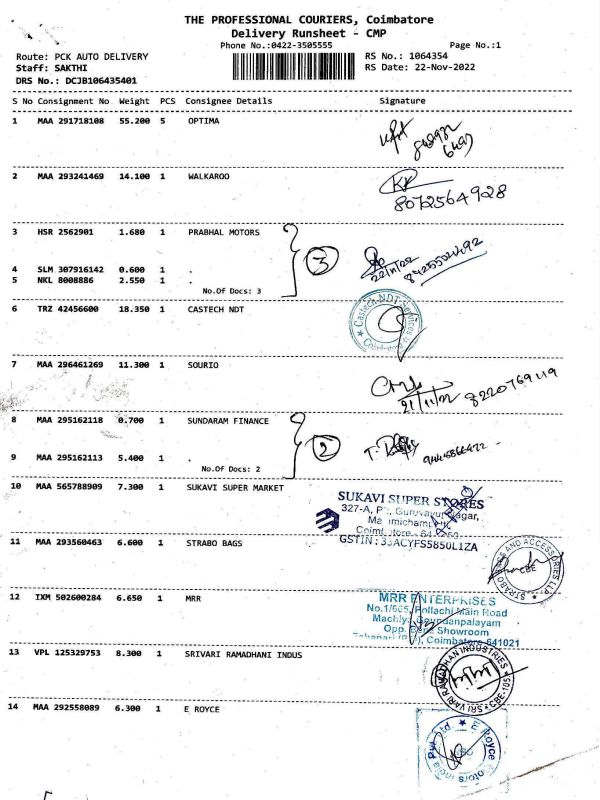 THE PROFESSIONAL COURIERS, Coimbatore
Delivery Runsheet - CMP
Phone No.:0422-3505555
Page No.:1
Route: PCK AUTO DELIVERY
RS No.: 1064354
Staff: SAKTHI
RS Date: 22-Nov-2022
DRS No.: DCJB106435401
S No Consignment No Weight PCS Consignee Details Signature
1 MAA 291718108 55.200 5 OPTIMA
2 MAA 293241469 14.100 1 WALKAROO
8072564928
3 HSR 2562901 1.680 1 PRABHAL MOTORS
3
22/11/22
4 SLM 307916142 0.600 1 .
5 NKL 8008886 2.550 1 .
No.Of Docs: 3
6 TRZ 42456600 18.350 1 CASTECH NDT
Castech NDT Services
7 MAA 296461269 11.300 1 SOURIO
21/11/22 8220769119
8 MAA 295162118 0.700 1 SUNDARAM FINANCE
2
9 MAA 295162113 5.400 1 .
No.Of Docs: 2
10 MAA 565788909 7.300 1 SUKAVI SUPER MARKET
SUKAVI SUPER STORES
327-A, Nagar,
GSTIN : 33ACYFS5850L1ZA
11 MAA 293560463 6.600 1 STRABO BAGS
STRABO AND ACCESSORIES
12 IXM 502600284 6.650 1 MRR
MRR ENTERPRISES
No.1/565, Pollachi Main Road
Machly, Goundanpalayam
Opp. Showroom
Coimbatore 641021
13 VPL 125329753 8.300 1 SRIVARI RAMADHANI INDUS
SRI VARI RAMADHAN INDUSTRIES CBE-105
14 MAA 292558089 6.300 1 E ROYCE
E Royce Motors India Pvt Ltd